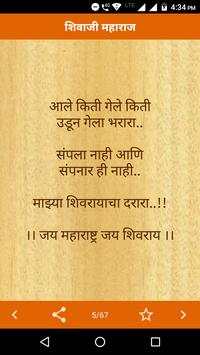 LTE 4:34 PM
शिवाजी महाराज
आले किती गेले किती
उडून गेला भरारा..
संपला नाही आणि
संपनार ही नाही..
माझ्या शिवरायाचा दरारा..!!
।। जय महाराष्ट्र जय शिवराय ।।
5/67